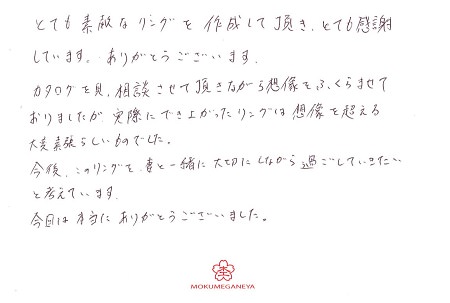 とても素敵なリングを作成して頂き、とても感謝
しています。ありがとうございます。
カタログを見、相談させて頂きながら想像をふくらませて
おりましたが実際にでき上がったリングは想像を超える
大変素晴らしいものでした。
今後、このリングを、妻と一緒に大切にしながら過ごしていきたい
と考えています。
今回は本当にありがとうございました。
MOKUMEGANEYA